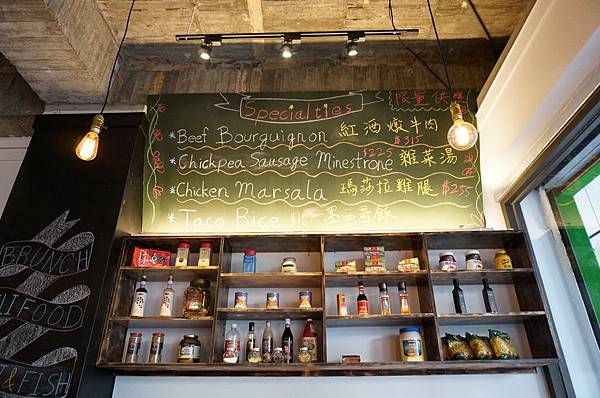 Specialties 限量供應
*Beef Bourguignon 紅酒燉牛肉 $315
*Chickpea Sausage Minestrone $225 雜菜湯
*Chicken Marsala 瑪莎拉雞腿 $255
*Taco Rice 墨西哥飯
BRUNCH
FOOD
& FISH